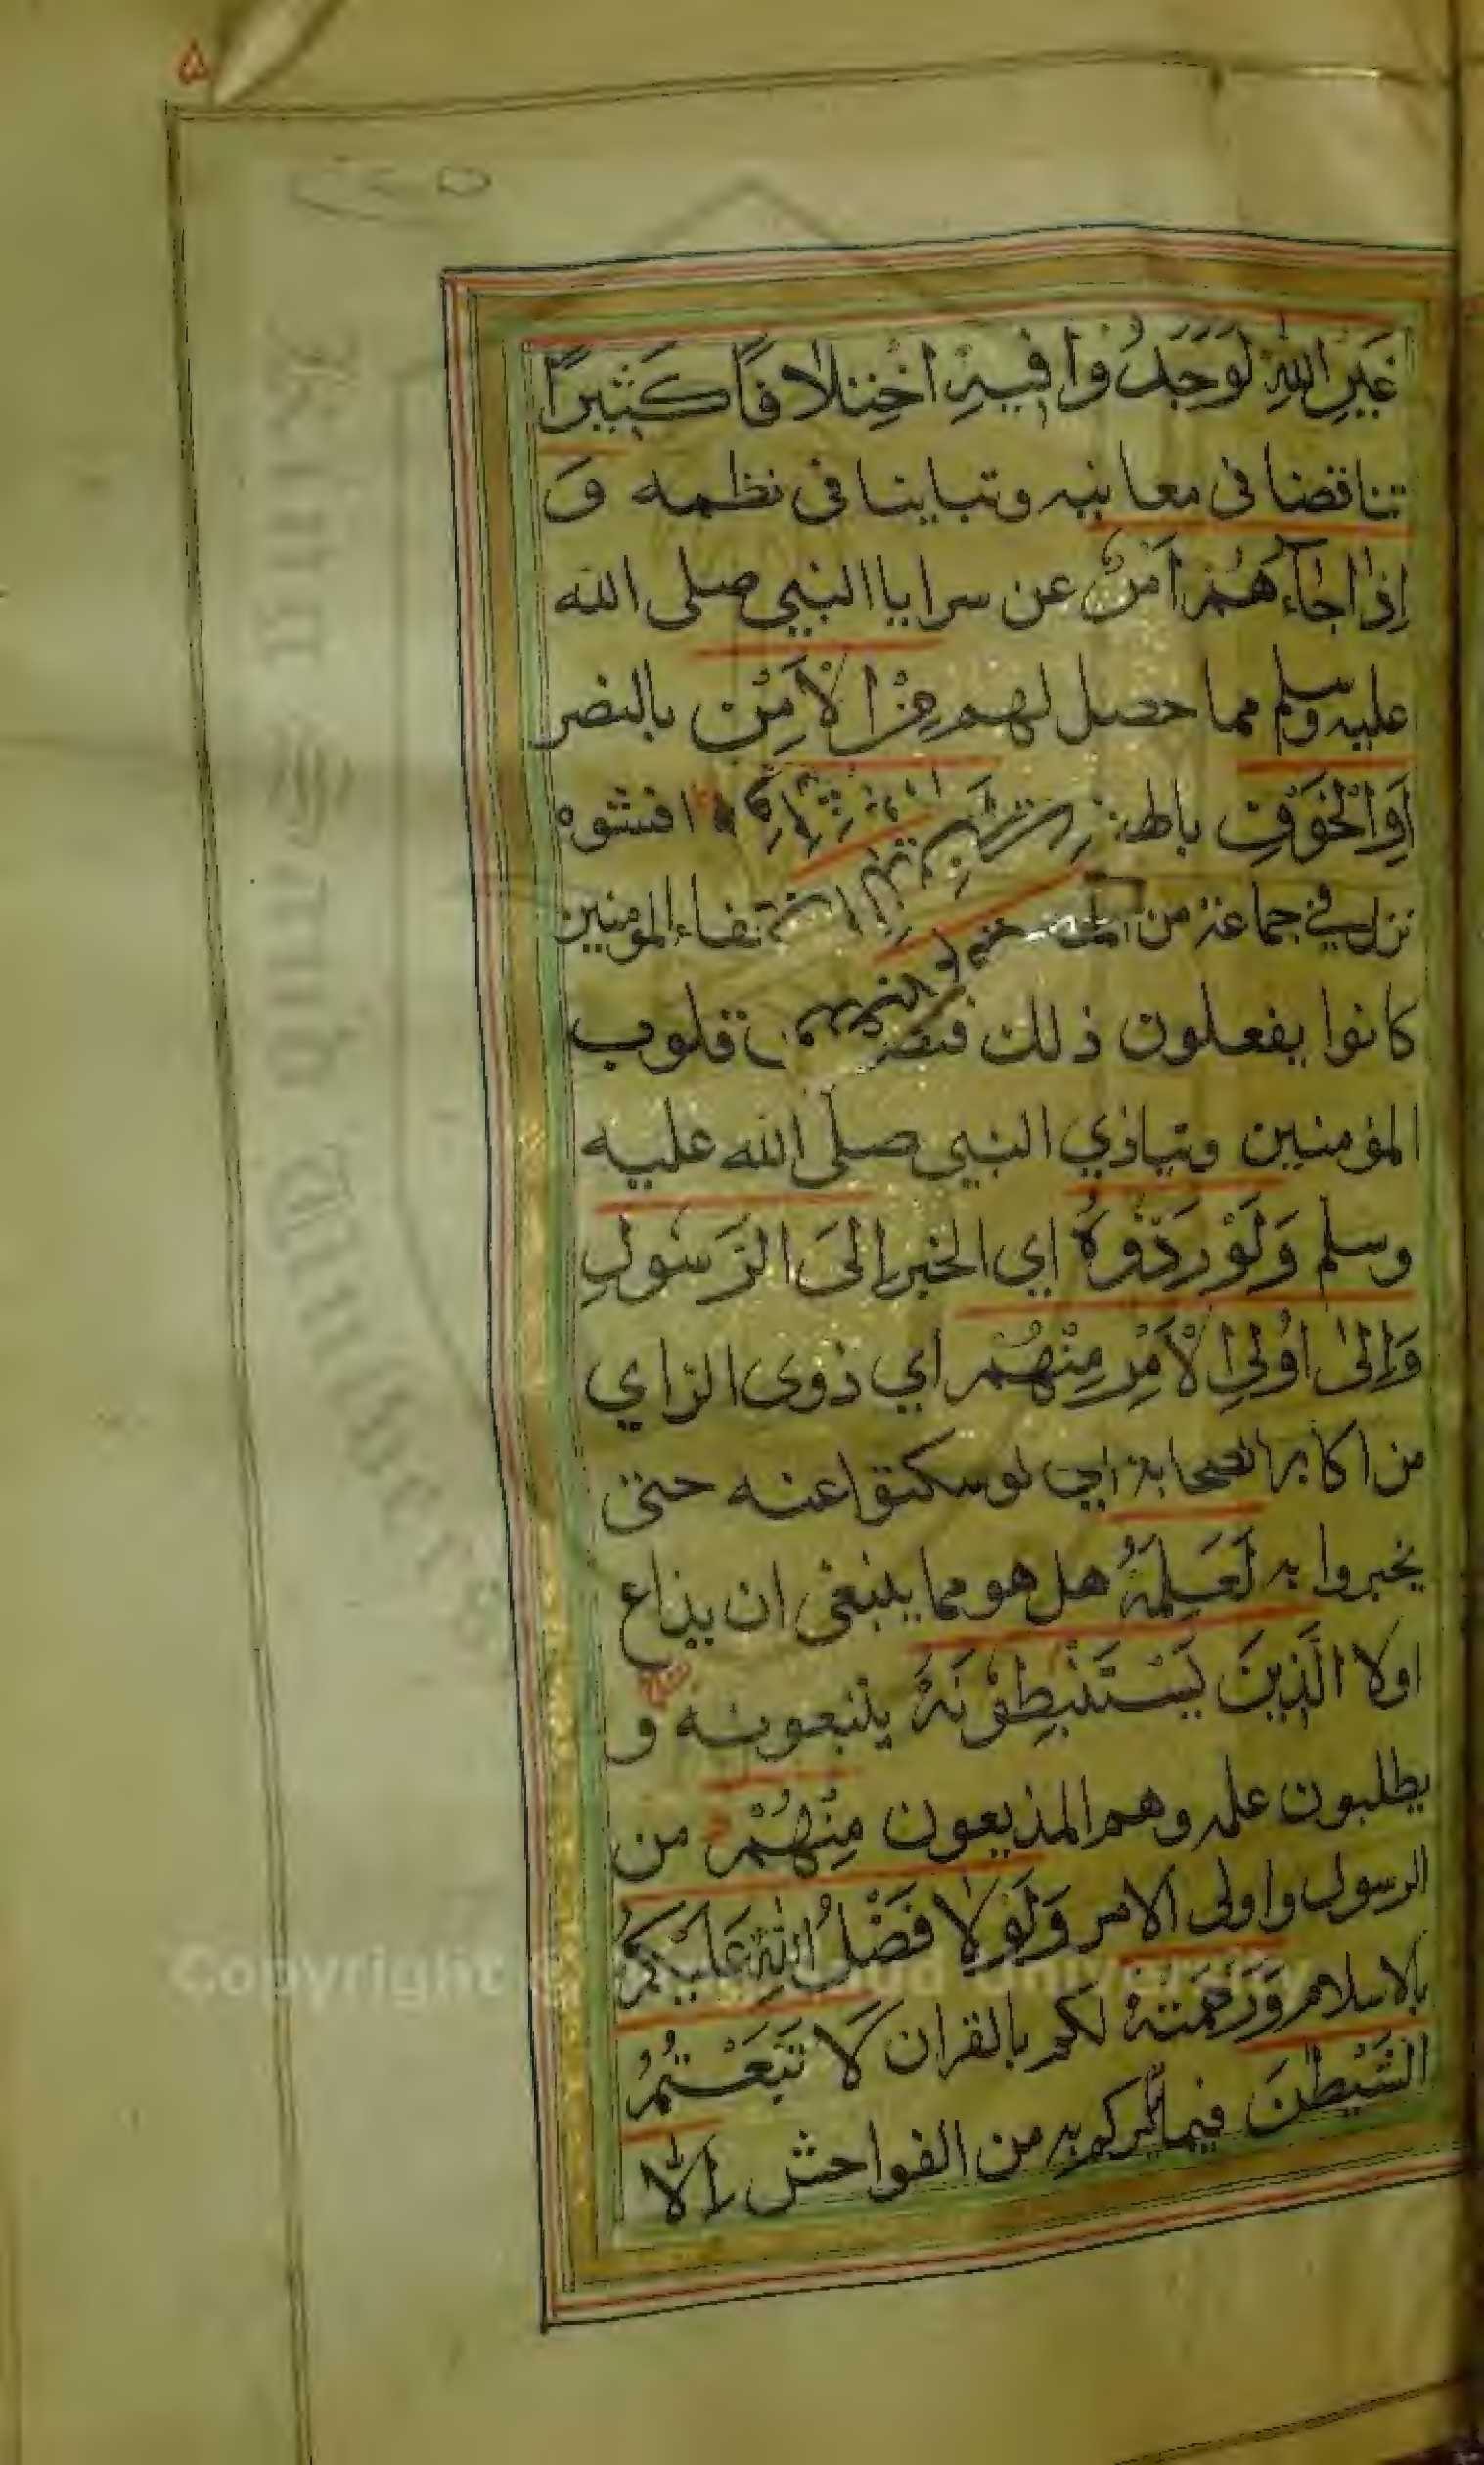 ٥
غَيْرِ اللّٰهِ لَوَجَدُوْا فِيْهِ اخْتِلَافًا كَثِيْرًا
تناقضا فى معانيه وتباينا فى نظمه وَ
اِذَا جَآءَهُمْ اَمْرٌ عن سرايا النبي صلى الله
عليه وسلم مما حصل لهم مِنَ الْاَمْنِ بالنصر
اَوِ الْخَوْفِ افشوه
نزل في جماعة من المؤمنين
كانوا يفعلون ذلك قلوب
المؤمنين ويتاذي النبي صلى الله عليه
وسلم وَلَوْ رَدُّوْهُ اي الخبر اِلَى الرَّسُوْلِ
وَاِلٰى اُولِي الْاَمْرِ مِنْهُمْ اي ذوى الراي
من اكابر الصحابة اي لو سكتوا عنه حتى
يخبروا به لَعَلِمَهُ هل هو مما ينبغى ان يذاع
اولا الَّذِيْنَ يَسْتَنْبِطُوْنَهٗ يتبعونه و
يطلبون علمه وهم المذيعون مِنْهُمْ من
الرسول واولى الامر وَلَوْلَا فَضْلُ اللّٰهِ عَلَيْكُمْ
بالاسلام وَرَحْمَتُهٗ لكم بالقران لَاتَّبَعْتُمُ
الشَّيْطٰنَ فيما يامركم به من الفواحش اِلَّا
Copyright © King Saud University
King Saud University